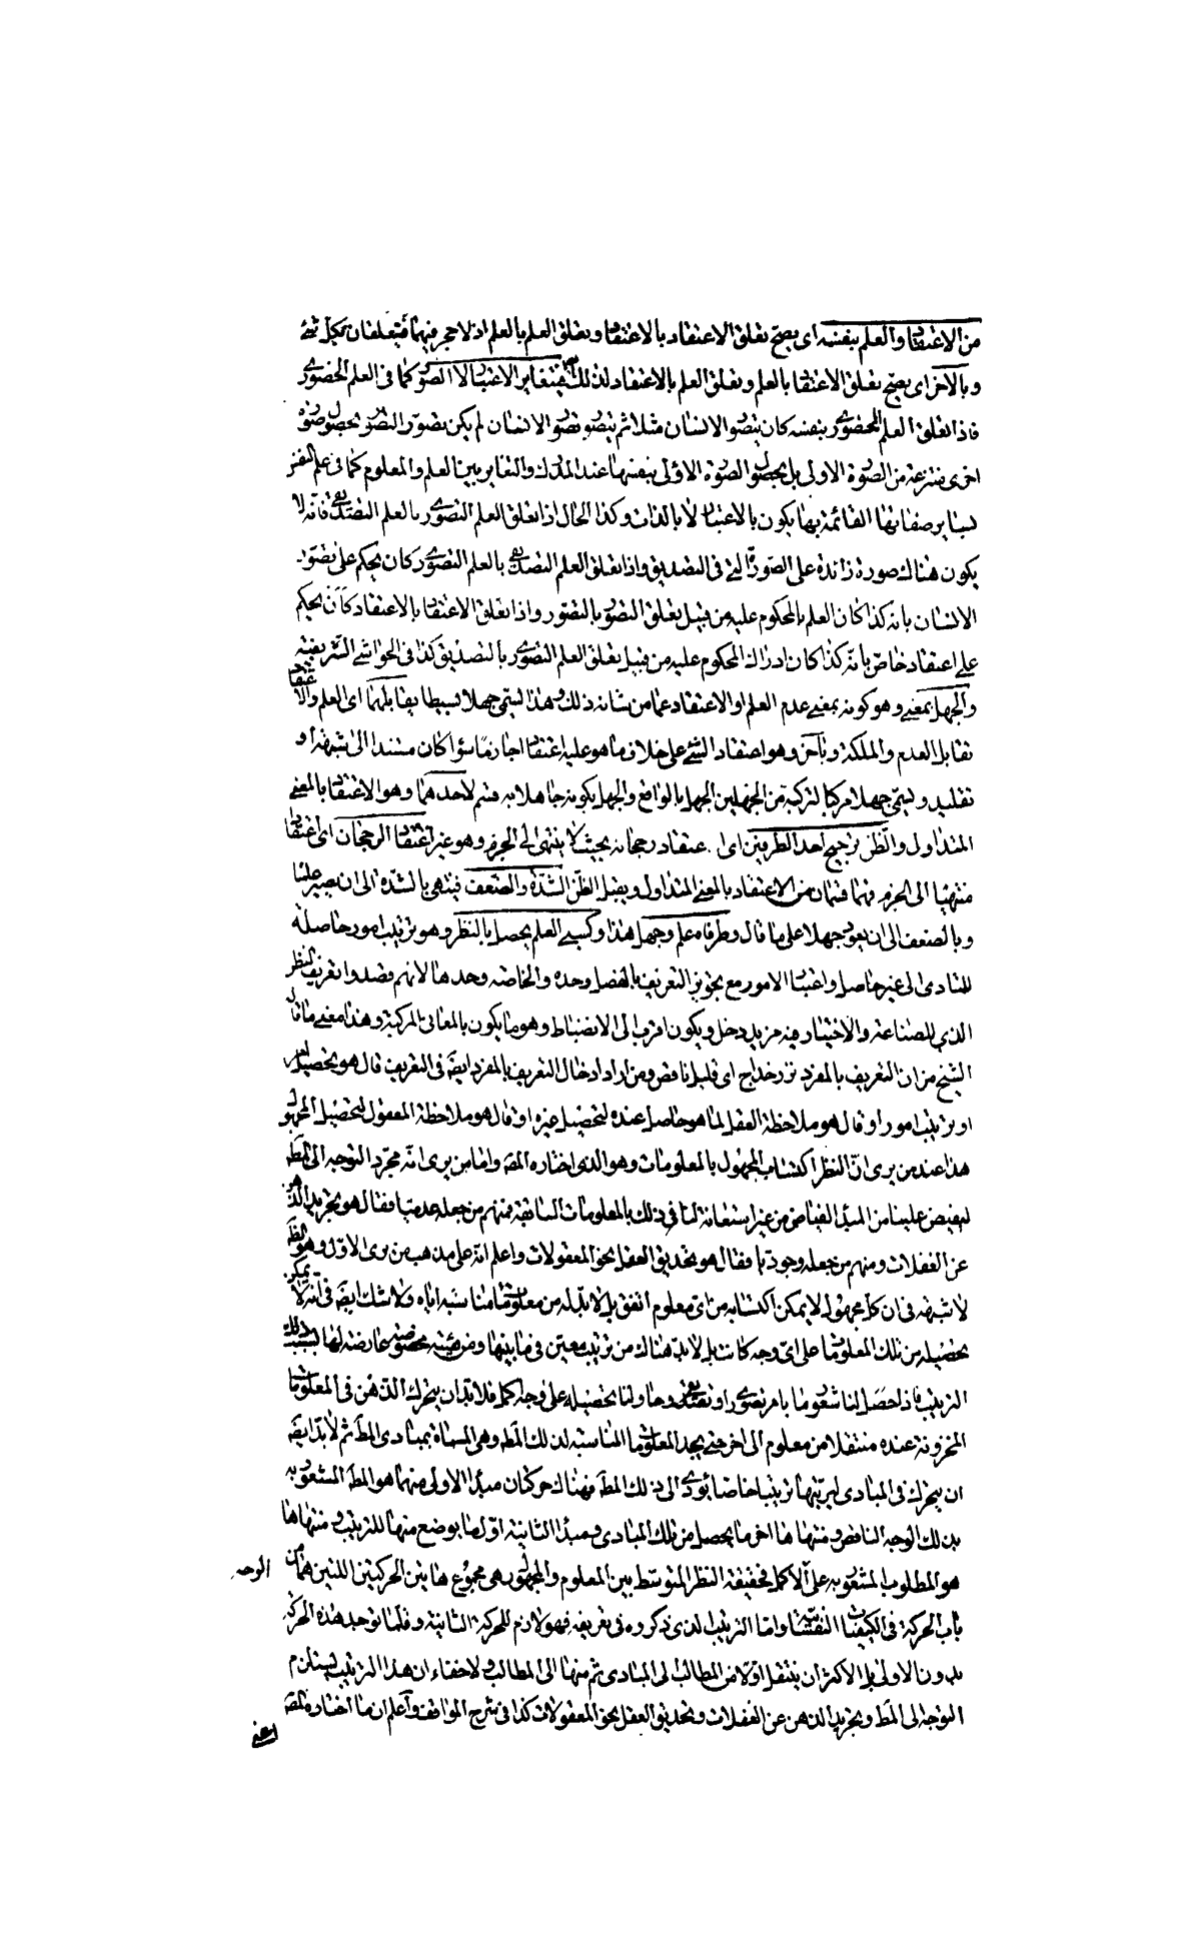 من الاعتقاد والعلم بنفسه اى يصح تعلق الاعتقاد بالاعتقاد وتعلق العلم بالعلم اذ لا حجر فيهما فيتعلقان بكل شئ
وبالآخر اى يصح تعلق الاعتقاد بالعلم وتعلق العلم بالاعتقاد لذلك فيتغاير الاعتبار لا الصور كما فى العلم الحضورى
فاذا تعلق العلم الحضورى بنفسه كان يتصور الانسان مثلا ثم يتصور تصور الانسان لم يكن تصور التصور بحصول صورة
اخرى منتزعة من الصورة الاولى بل بحصول الصورة الاولى بنفسها عند المدرك والتغاير بين العلم والمعلوم كما فى علم النفس
بسائر صفاتها القائمة بها يكون بالاعتبار لا بالذات وكذا الحال اذا تعلق العلم التصورى بالعلم التصديقى فانه لا
يكون هناك صورة زائدة على الصورة التى فى التصديق واذا تعلق العلم التصديقى بالعلم التصورى كان يحكم على تصور
الانسان بانه كذا كان العلم بالمحكوم عليه من قبيل تعلق التصور بالتصور واذا تعلق الاعتقاد بالاعتقاد كان يحكم
على اعتقاد خاص بانه كذا كان ادراك المحكوم عليه من قبيل تعلق العلم التصورى بالتصديق كذا فى الحواشى الشريفية
والجهل بمعنى وهو كونه بمعنى عدم العلم او الاعتقاد عما من شانه ذلك وهذا يسمى جهلا بسيطا يقابلهما اى العلم والاعتقاد
تقابل العدم والملكة وبآخر وهو اعتقاد الشئ على خلاف ما هو عليه اعتقادا جازما سواء كان مستندا الى شبهة او
تقليد ويسمى جهلا مركبا لتركبه من الجهلين الجهل بالواقع والجهل بكونه جاهلا به قسم لاحدهما وهو الاعتقاد بالمعنى
المتداول والظن ترجيح احد الطرفين اى اعتقاد رجحانه بحيث لا ينتهى الى الجزم وهو غير اعتقاد الرجحان اى اعتقادا
منتهيا الى الجزم فهما قسمان من الاعتقاد بالمعنى المتداول ويقبل الظن الشدة والضعف فينتهى بالشدة الى ان يصير علما
وبالضعف الى ان يعود جهلا على ما قال وطرفاه علم وجهل هذا وكسبى العلم يحصل بالنظر وهو ترتيب امور حاصلة
للتادى الى غير حاصل واعتبار الامور مع تجويز التعريف بالفصل وحده والخاصة وحدها لانهم قصدوا تعريف النظر
الذى للصناعة والاختيار فيه مزيد دخل ويكون اقرب الى الانضباط وهو ما يكون بالمعانى المركبة وهذا معنى ما قال
الشيخ من ان التعريف بالمفرد نزر خداج اى قليل ناقص ومن اراد ادخال التعريف بالمفرد ايضا فى التعريف قال هو تحصيل امر
او ترتيب امور او قال هو ملاحظة العقل لما هو حاصل عنده لتحصيل غيره او قال هو ملاحظة المعقول لتحصيل المجهول
هذا عند من يرى ان النظر اكتساب المجهول بالمعلومات وهو الذى اختاره المص واما من يرى انه مجرد التوجه الى المط
ليفيض علينا من المبدأ الفياض من غير استعانة لنا فى ذلك بالمعلومات السابقة فمنهم من جعله عدميا فقال هو تجريد الذهن
عن الغفلات ومنهم من جعله وجوديا فقال هو تحديق العقل نحو المعقولات واعلم انه على مذهب من يرى الاول وهو الظ
لا شبهة فى ان كل مجهول لا يمكن اكتسابه من اى معلوم اتفق بل لابد له من معلومات مناسبة اياه ولا شك ايضا فى انه لا يمكن
تحصيله من تلك المعلومات على اى وجه كانت بل لابد هناك من ترتيب معين فى ما بينها ومن هيئة مخصوصة عارضة لها بسبب ذلك
الترتيب فاذا حصل لنا شعور ما بامر تصورى او تصديقى وحاولنا تحصيله على وجه اكمل فلابد ان يتحرك الذهن فى المعلومات
المخزونة عنده منتقلا من معلوم الى آخر حتى يجد المعلومات المناسبة لذلك المط وهى المسماة بمبادى المط ثم لابد ايضا
ان يتحرك فى المبادى ليرتبها ترتيبا خاصا يؤدى الى ذلك المط فهناك حركتان مبدأ الاولى منهما هو المط المشعور به
بذلك الوجه الناقص ومنتهاها آخر ما يحصل من تلك المبادى ومبدأ الثانية اول ما يوضع منها للترتيب ومنتهاها
هو المطلوب المشعور به على الاكمل فحقيقة النظر المتوسط بين المعلوم والمجهول هى مجموع هاتين الحركتين اللتين هما من
الوجه
باب الحركة فى الكيفيات النفسانية واما الترتيب الذى ذكروه فى تعريفه فهو لازم للحركة الثانية وقلما توجد هذه الحركة
بدون الاولى بل الاكثر ان ينتقل اولا من المطالب الى المبادى ثم منها الى المطالب ولا خفاء ان هذا الترتيب يستلزم
التوجه الى المط وتجريد الذهن عن الغفلات وتحديق العقل نحو المعقولات كذا فى شرح المواقف واعلم ان ما اختاره المص
اعنى